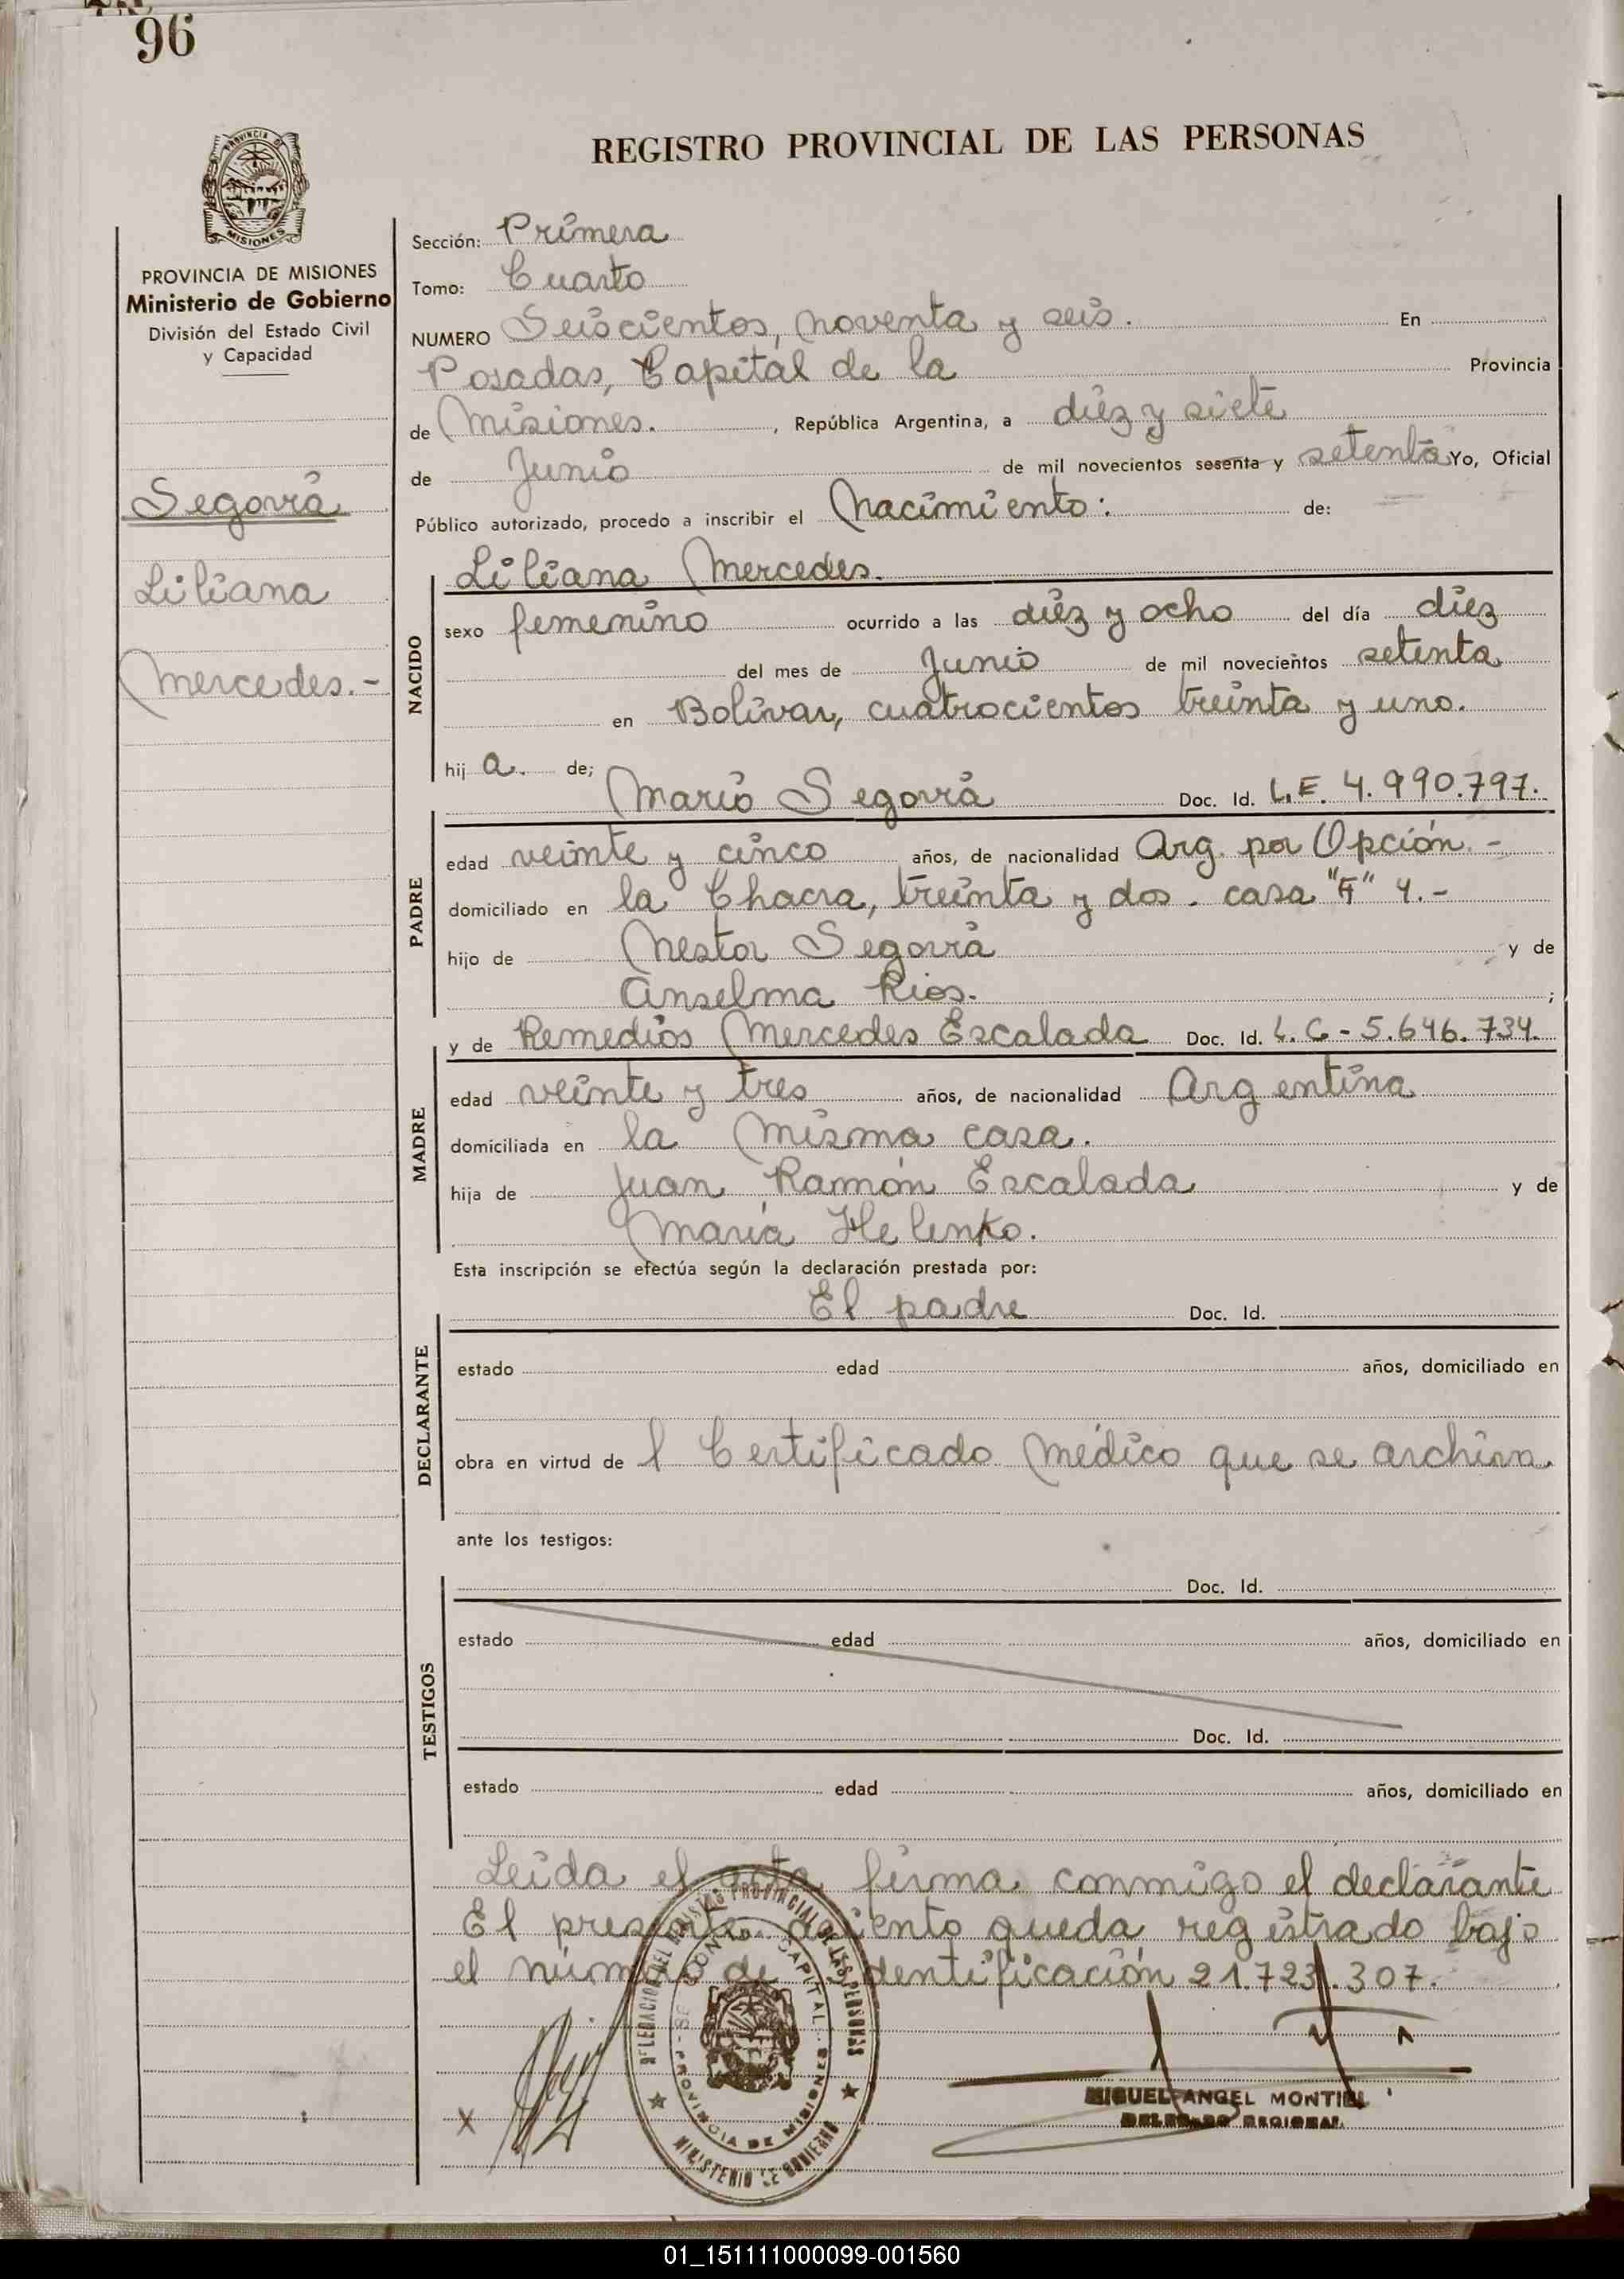 96
REGISTRO PROVINCIAL DE LAS PERSONAS
PROVINCIA DE
MISIONES
PROVINCIA DE MISIONES
Ministerio de Gobierno
División del Estado Civil
y Capacidad
Segovia
Liliana
Mercedes.-
Sección: Primera
Tomo: Cuarto
NUMERO Seiscientos, noventa y seis. En
Posadas, Capital de la Provincia
de Misiones. , República Argentina, a diez y siete
de Junio de mil novecientos sesenta y setenta Yo, Oficial
Público autorizado, procedo a inscribir el Nacimiento: de:
Liliana Mercedes.
NACIDO
sexo femenino ocurrido a las diez y ocho del día diez
del mes de Junio de mil novecientos setenta
en Bolívar, cuatrocientos treinta y uno.
hij a. de;
Mario Segovia Doc. Id. L.E. 4.990.797.
PADRE
edad veinte y cinco años, de nacionalidad Arg. por Opción.-
domiciliado en la Chacra, treinta y dos. casa "F" 4.-
hijo de Nestor Segovia y de
Anselma Rios. ;
y de Remedios Mercedes Escalada Doc. Id. L.C-5.646.734.
MADRE
edad veinte y tres años, de nacionalidad Argentina
domiciliada en la misma casa.
hija de Juan Ramón Escalada y de
María Helenko.
Esta inscripción se efectúa según la declaración prestada por:
El padre Doc. Id.
DECLARANTE
estado edad años, domiciliado en
obra en virtud de l Certificado Médico que se archiva.
ante los testigos:
Doc. Id.
TESTIGOS
estado edad años, domiciliado en
Doc. Id.
estado edad años, domiciliado en
Leida el acta firma conmigo el declarante
El presente asiento queda registrado bajo
el número de identificación 21.723.307.
PROVINCIAL DE LAS PERSONAS
CAPITAL
PROVINCIA DE MISIONES
MINISTERIO DE GOBIERNO
x
MIGUEL ANGEL MONTIEL
DELEGADO REGIONAL
01_151111000099-001560